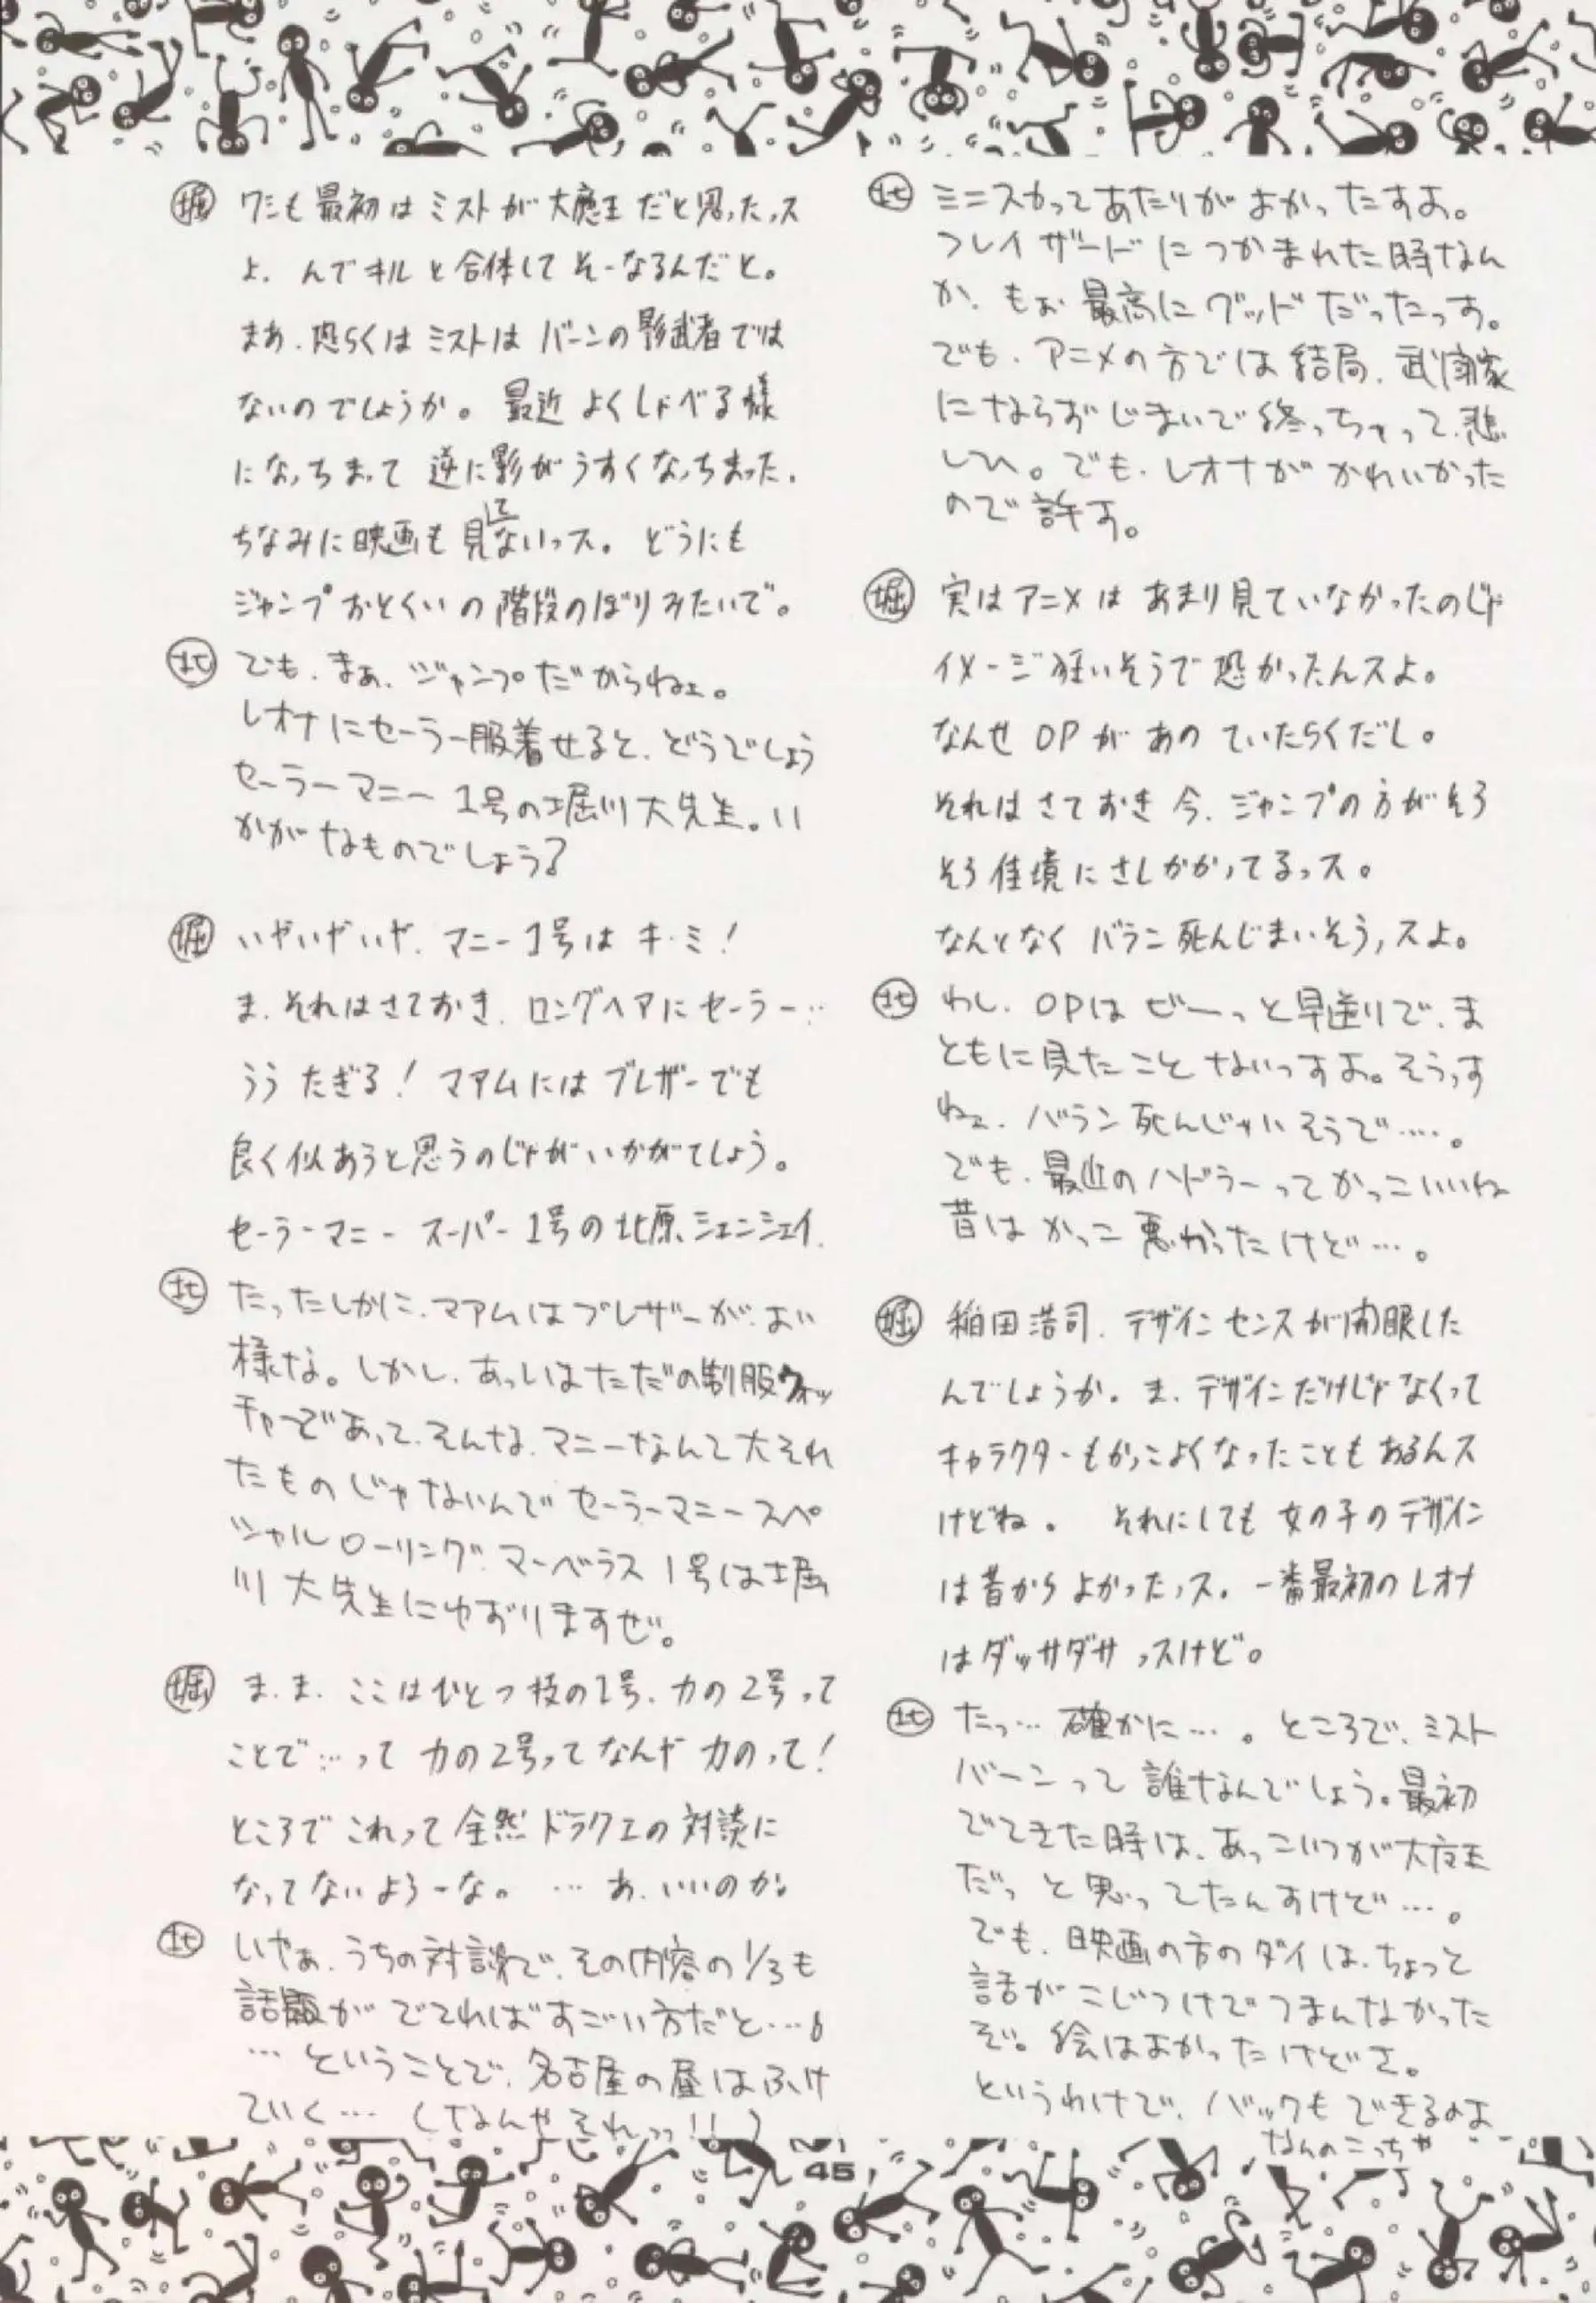 北 ミニスカってあたりがよかったすよ。
フレイザードにつかまれた時なん
か、もぉ最高にグッドだったっす。
でも、アニメの方では結局、武闘家
にならずじまいで終っちゃって、悲
しひ。でも、レオナがかわいかった
ので許す。
堀 実はアニメはあまり見ていなかったのじゃ
イメージ狂いそうで恐かったんスよ。
なんせOPがあのていたらくだし。
それはさておき今、ジャンプの方がそろ
そろ佳境にさしかかってるっス。
なんとなくバラン死んじまいそうっスよ。
北 わし、OPはビーっと早送りで、ま
ともに見たことないっすよ。そうっす
ねェ、バラン死んじゃいそうで…。
でも、最近のハドラーってかっこいいね
昔はかっこ悪かったけど…。
堀 稲田浩司、デザインセンスが開眼した
んでしょうか。ま、デザインだけじゃなくって
キャラクターもかっこよくなったこともあるんス
けどね。 それにしても女の子のデザイン
は昔からよかったっス。一番最初のレオナ
はダッサダサっスけど。
北 たっ…確かに…。ところで、ミスト
バーンって誰なんでしょう。最初
でてきた時は、あっこいつが大魔王
だっと思ってたんすけど…。
でも、映画の方のダイは、ちょっと
話がこじつけでつまんなかった
ぞ。絵はよかったけどさ。
というわけで、バックもできるのよ
なんのこっちゃ
堀 ワシも最初はミストが大魔王だと思ったっス
よ、んでキルと合体してそーなるんだと。
まあ、恐らくはミストはバーンの影武者では
ないのでしょうか。最近よくしゃべる様
になっちまって逆に影がうすくなっちまった。
ちなみに映画も見てないっス。どうにも
ジャンプおとくいの階段のぼりみたいで。
北 でも、まぁ、ジャンプだからねェ。
レオナにセーラー服着せると、どうでしょう
セーラーマニー1号の堀川大先生。い
かがなものでしょう?
堀 いやいやいや、マニー1号はキ・ミ!
ま、それはさておき、ロングヘアにセーラー…
うう たぎる! マアムにはブレザーでも
良く似あうと思うのじゃがいかがでしょう。
セーラーマニースーパー1号の北原シェンシェイ。
北 たったしかに、マアムはブレザーがよい
様な。しかし、あっしはただの制服ウォッ
チャーであって、そんな、マニーなんて大それ
たものじゃないんでセーラーマニースペ
シャルローリングマーベラス1号は堀
川大先生にゆずりますぜ。
堀 ま、ま、ここはひとつ技の1号、力の2号って
ことで…って力の2号ってなんや力のって!
ところでこれって全然ドラクエの対談に
なってないよろーな。 …あ、いいのか
北 いやぁ、うちの対談で、その内容の1/3も
話題がでてればすごい方だと…。
…ということで、名古屋の昼はふけ
ていく…(なんやそれっっ!!)
45